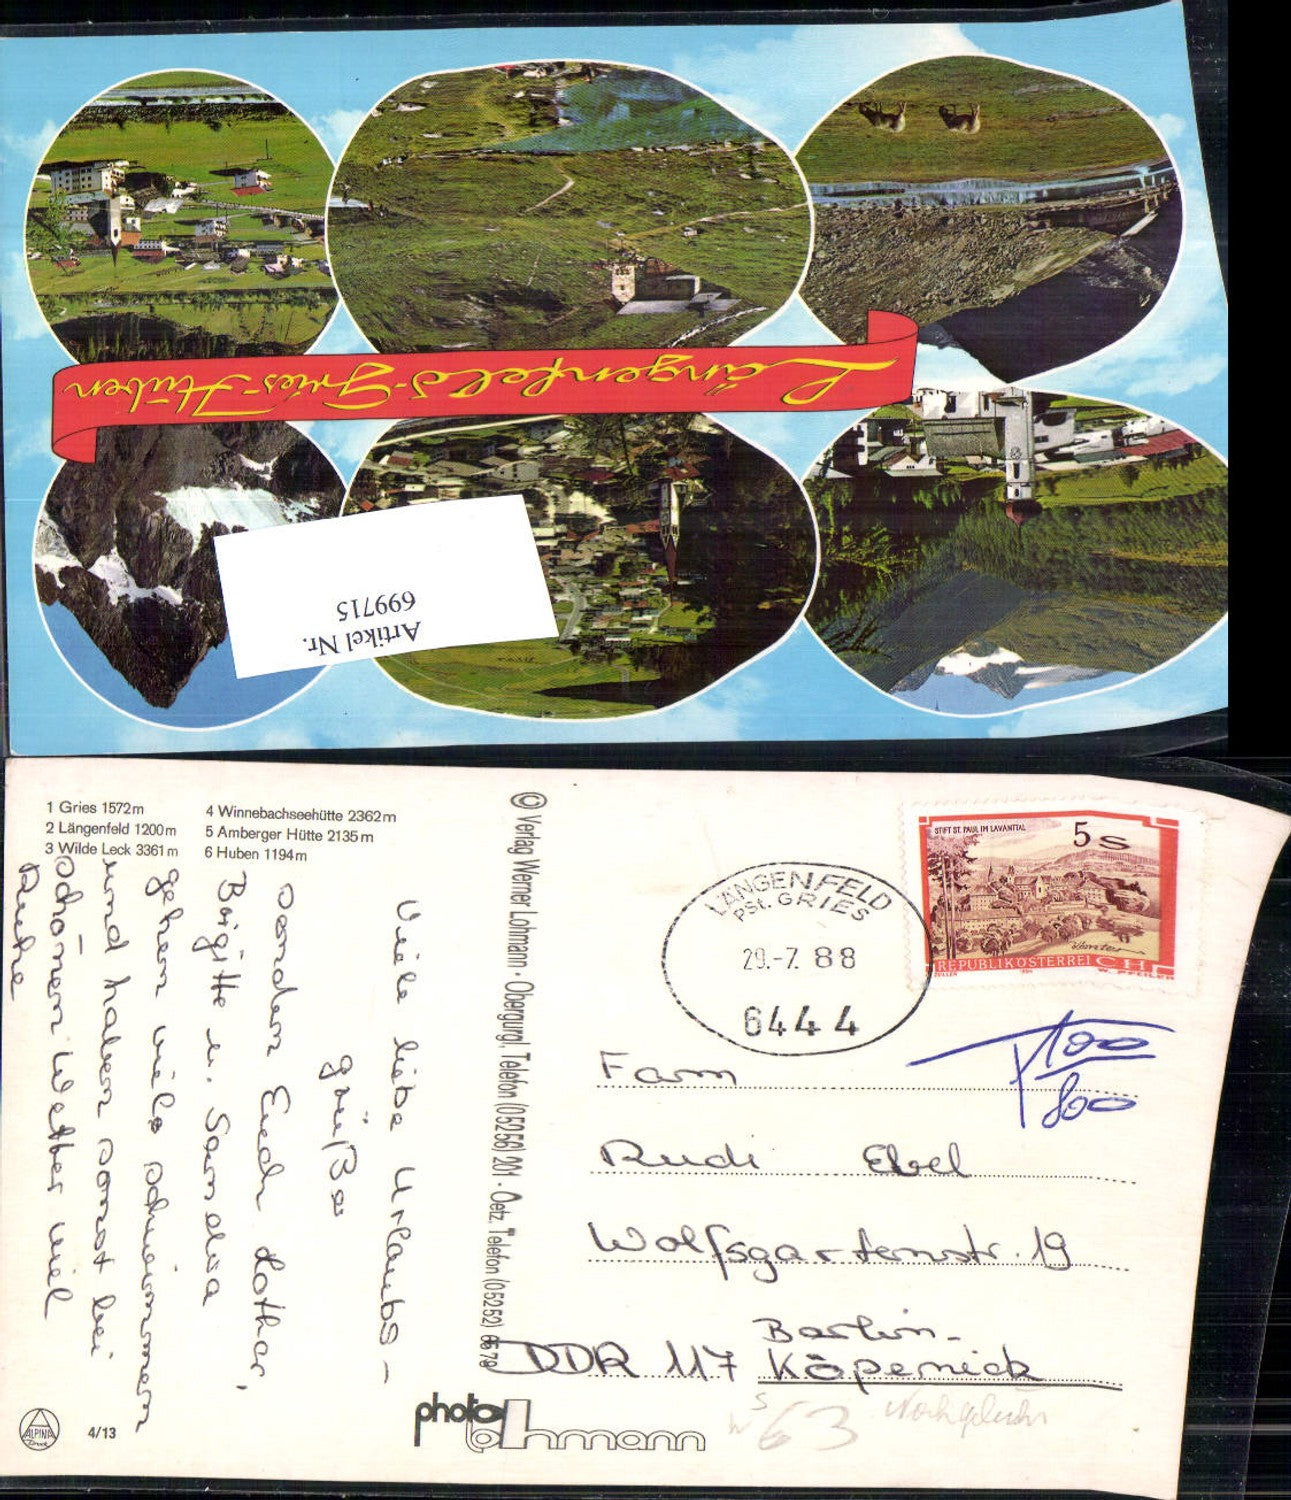 Längenfeld-Gries-Huben
Artikel Nr.
699715
1 Gries 1572m
2 Längenfeld 1200m
3 Wilde Leck 3361m
4 Winnebachseehütte 2362m
5 Amberger Hütte 2135m
6 Huben 1194m
Viele liebe Urlaubs-
grüße
senden Euch Lothar,
Brigitte u. Sandra
gehen viele schwimmen
und haben sonst bei
schönem Wetter viel
Ruhe
© Verlag Werner Lohmann · Obergurgl, Telefon (05256) 201 · Oetz, Telefon (05252) 6579
LÄNGENFELD
PSt. GRIES
29.-7.88
6444
STIFT ST. PAUL IM LAVANTTAL
5 S
Kärnten
REPUBLIK ÖSTERREICH
ZEILER
1984
W. PFEILER
T 100
800
Fam
Rudi Ebel
Wolfsgartenstr. 19
Berlin-
DDR 117 Köpenick
S
63 Nachgebühr
ALPINA
Druck
4/13
photo
lohmann